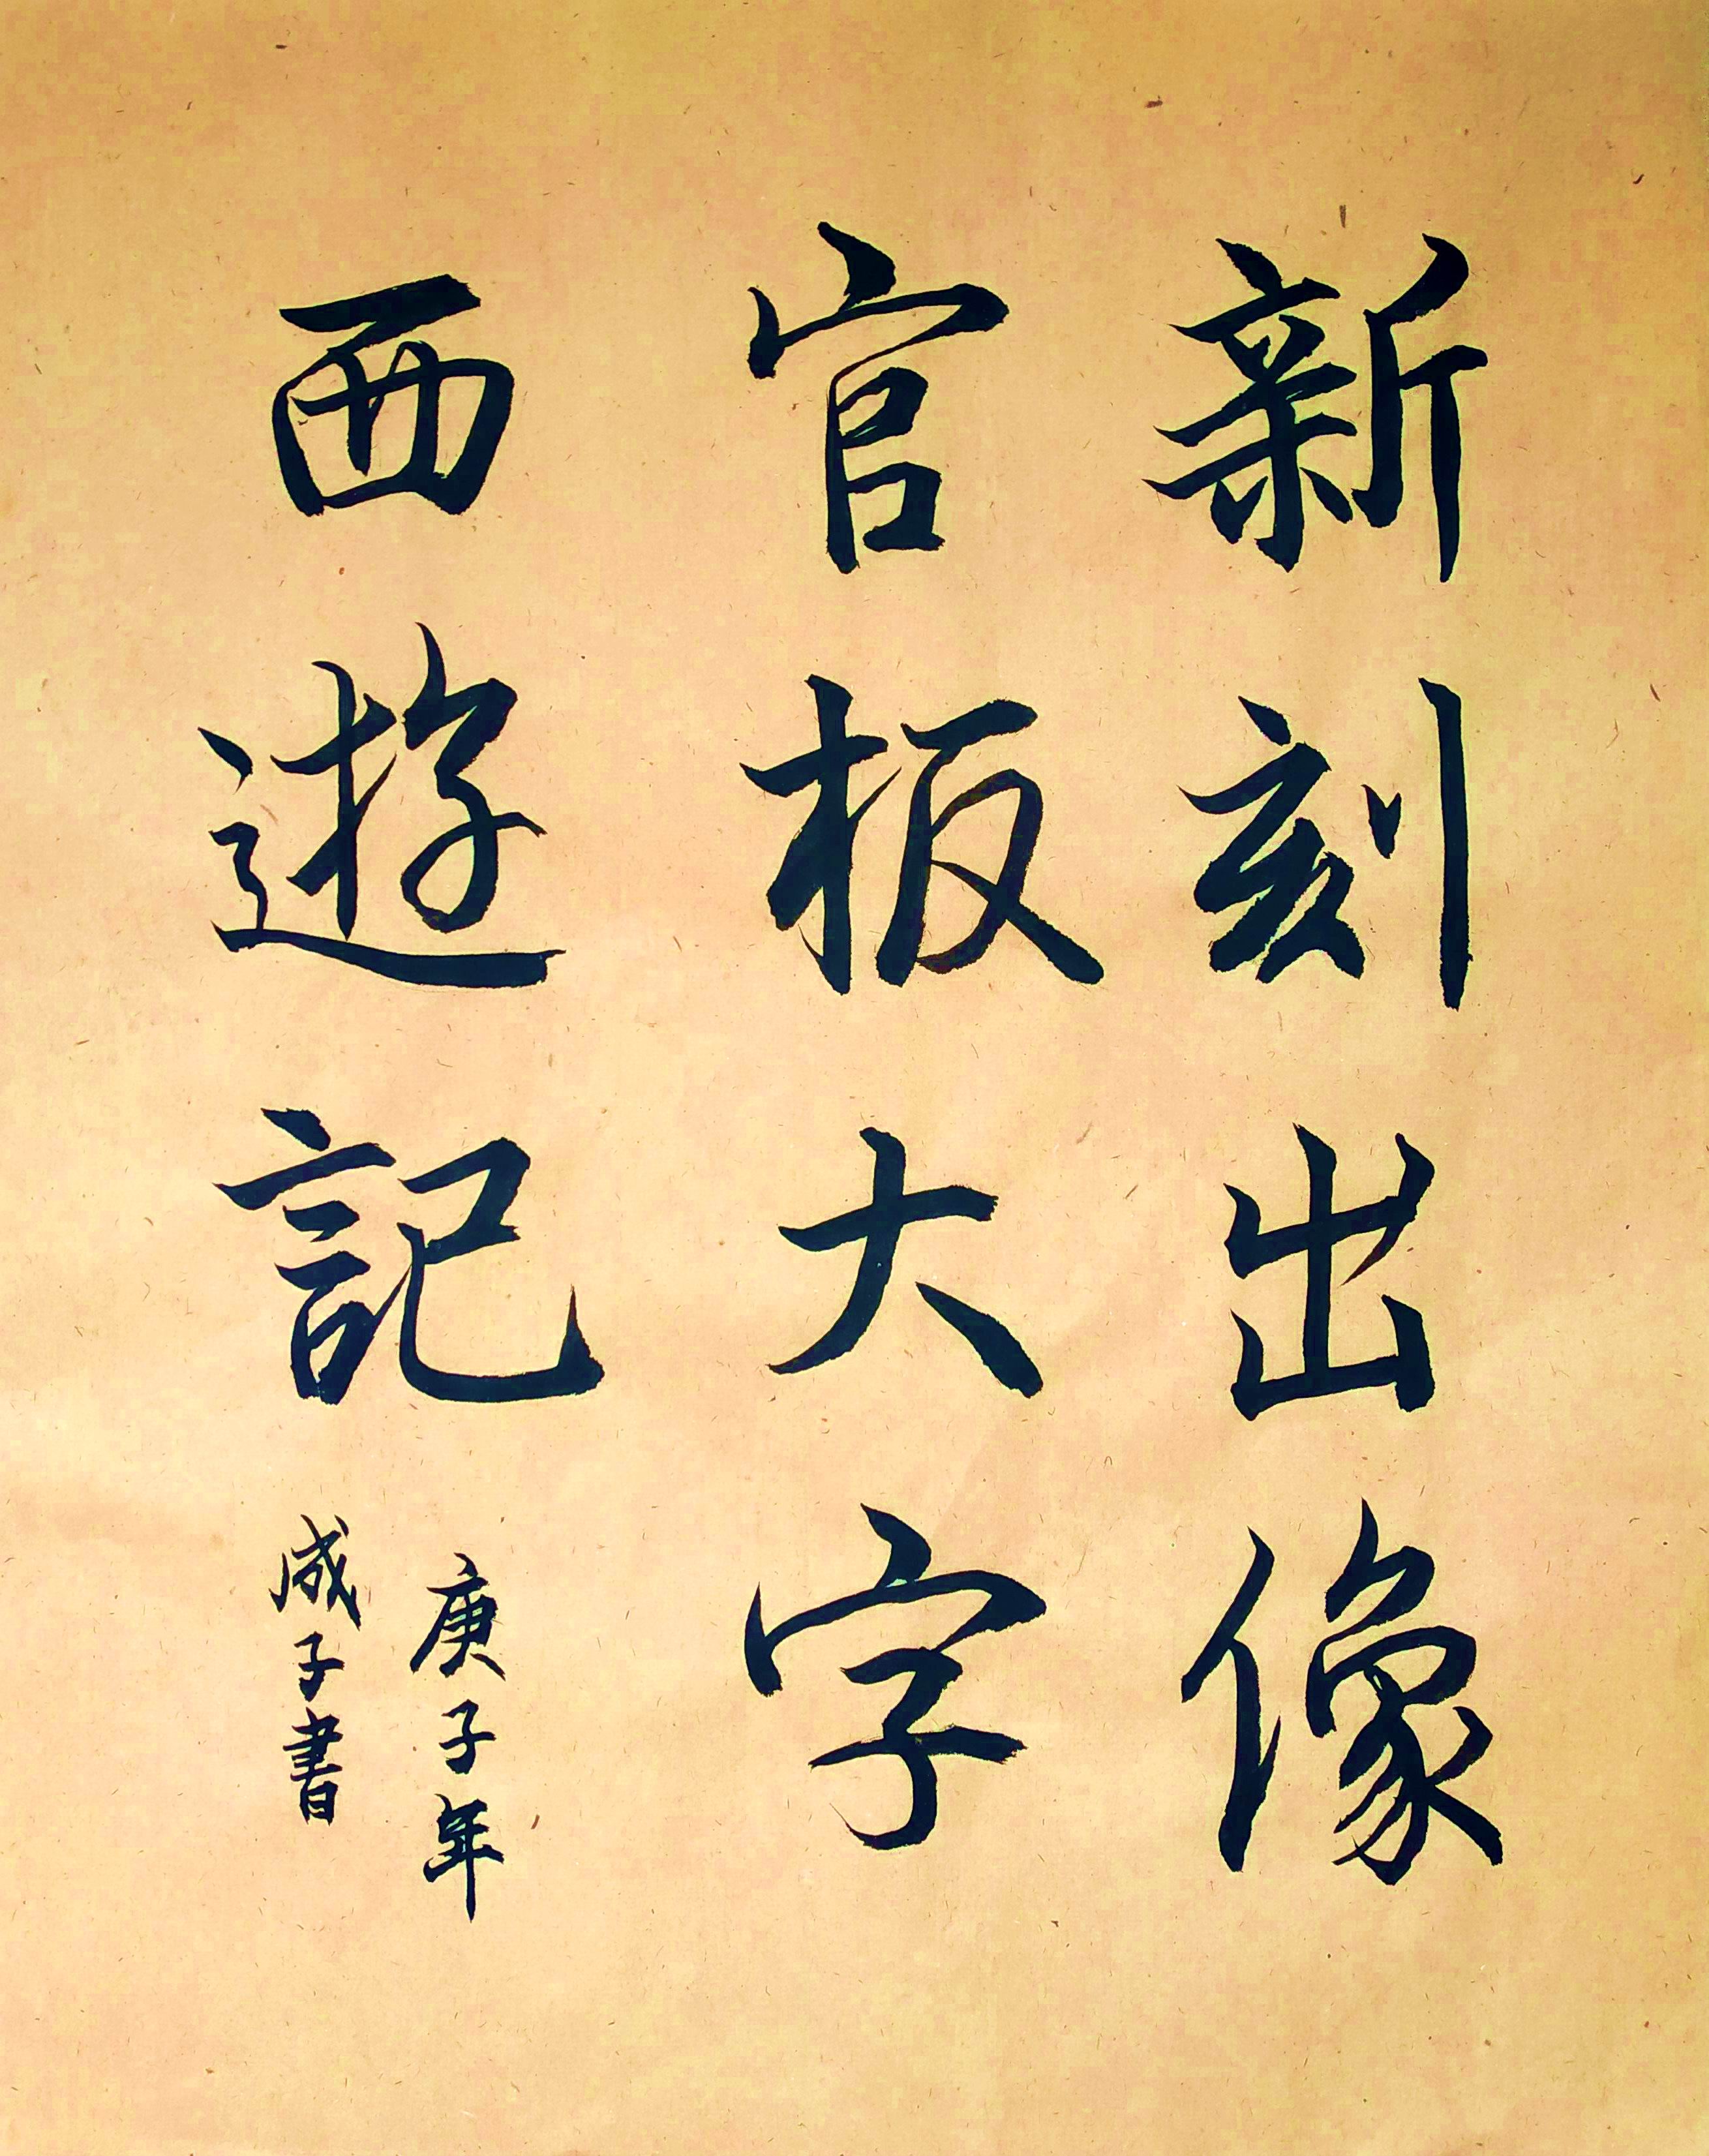 新刻出像
官板大字
西遊記
庚子年
成子書